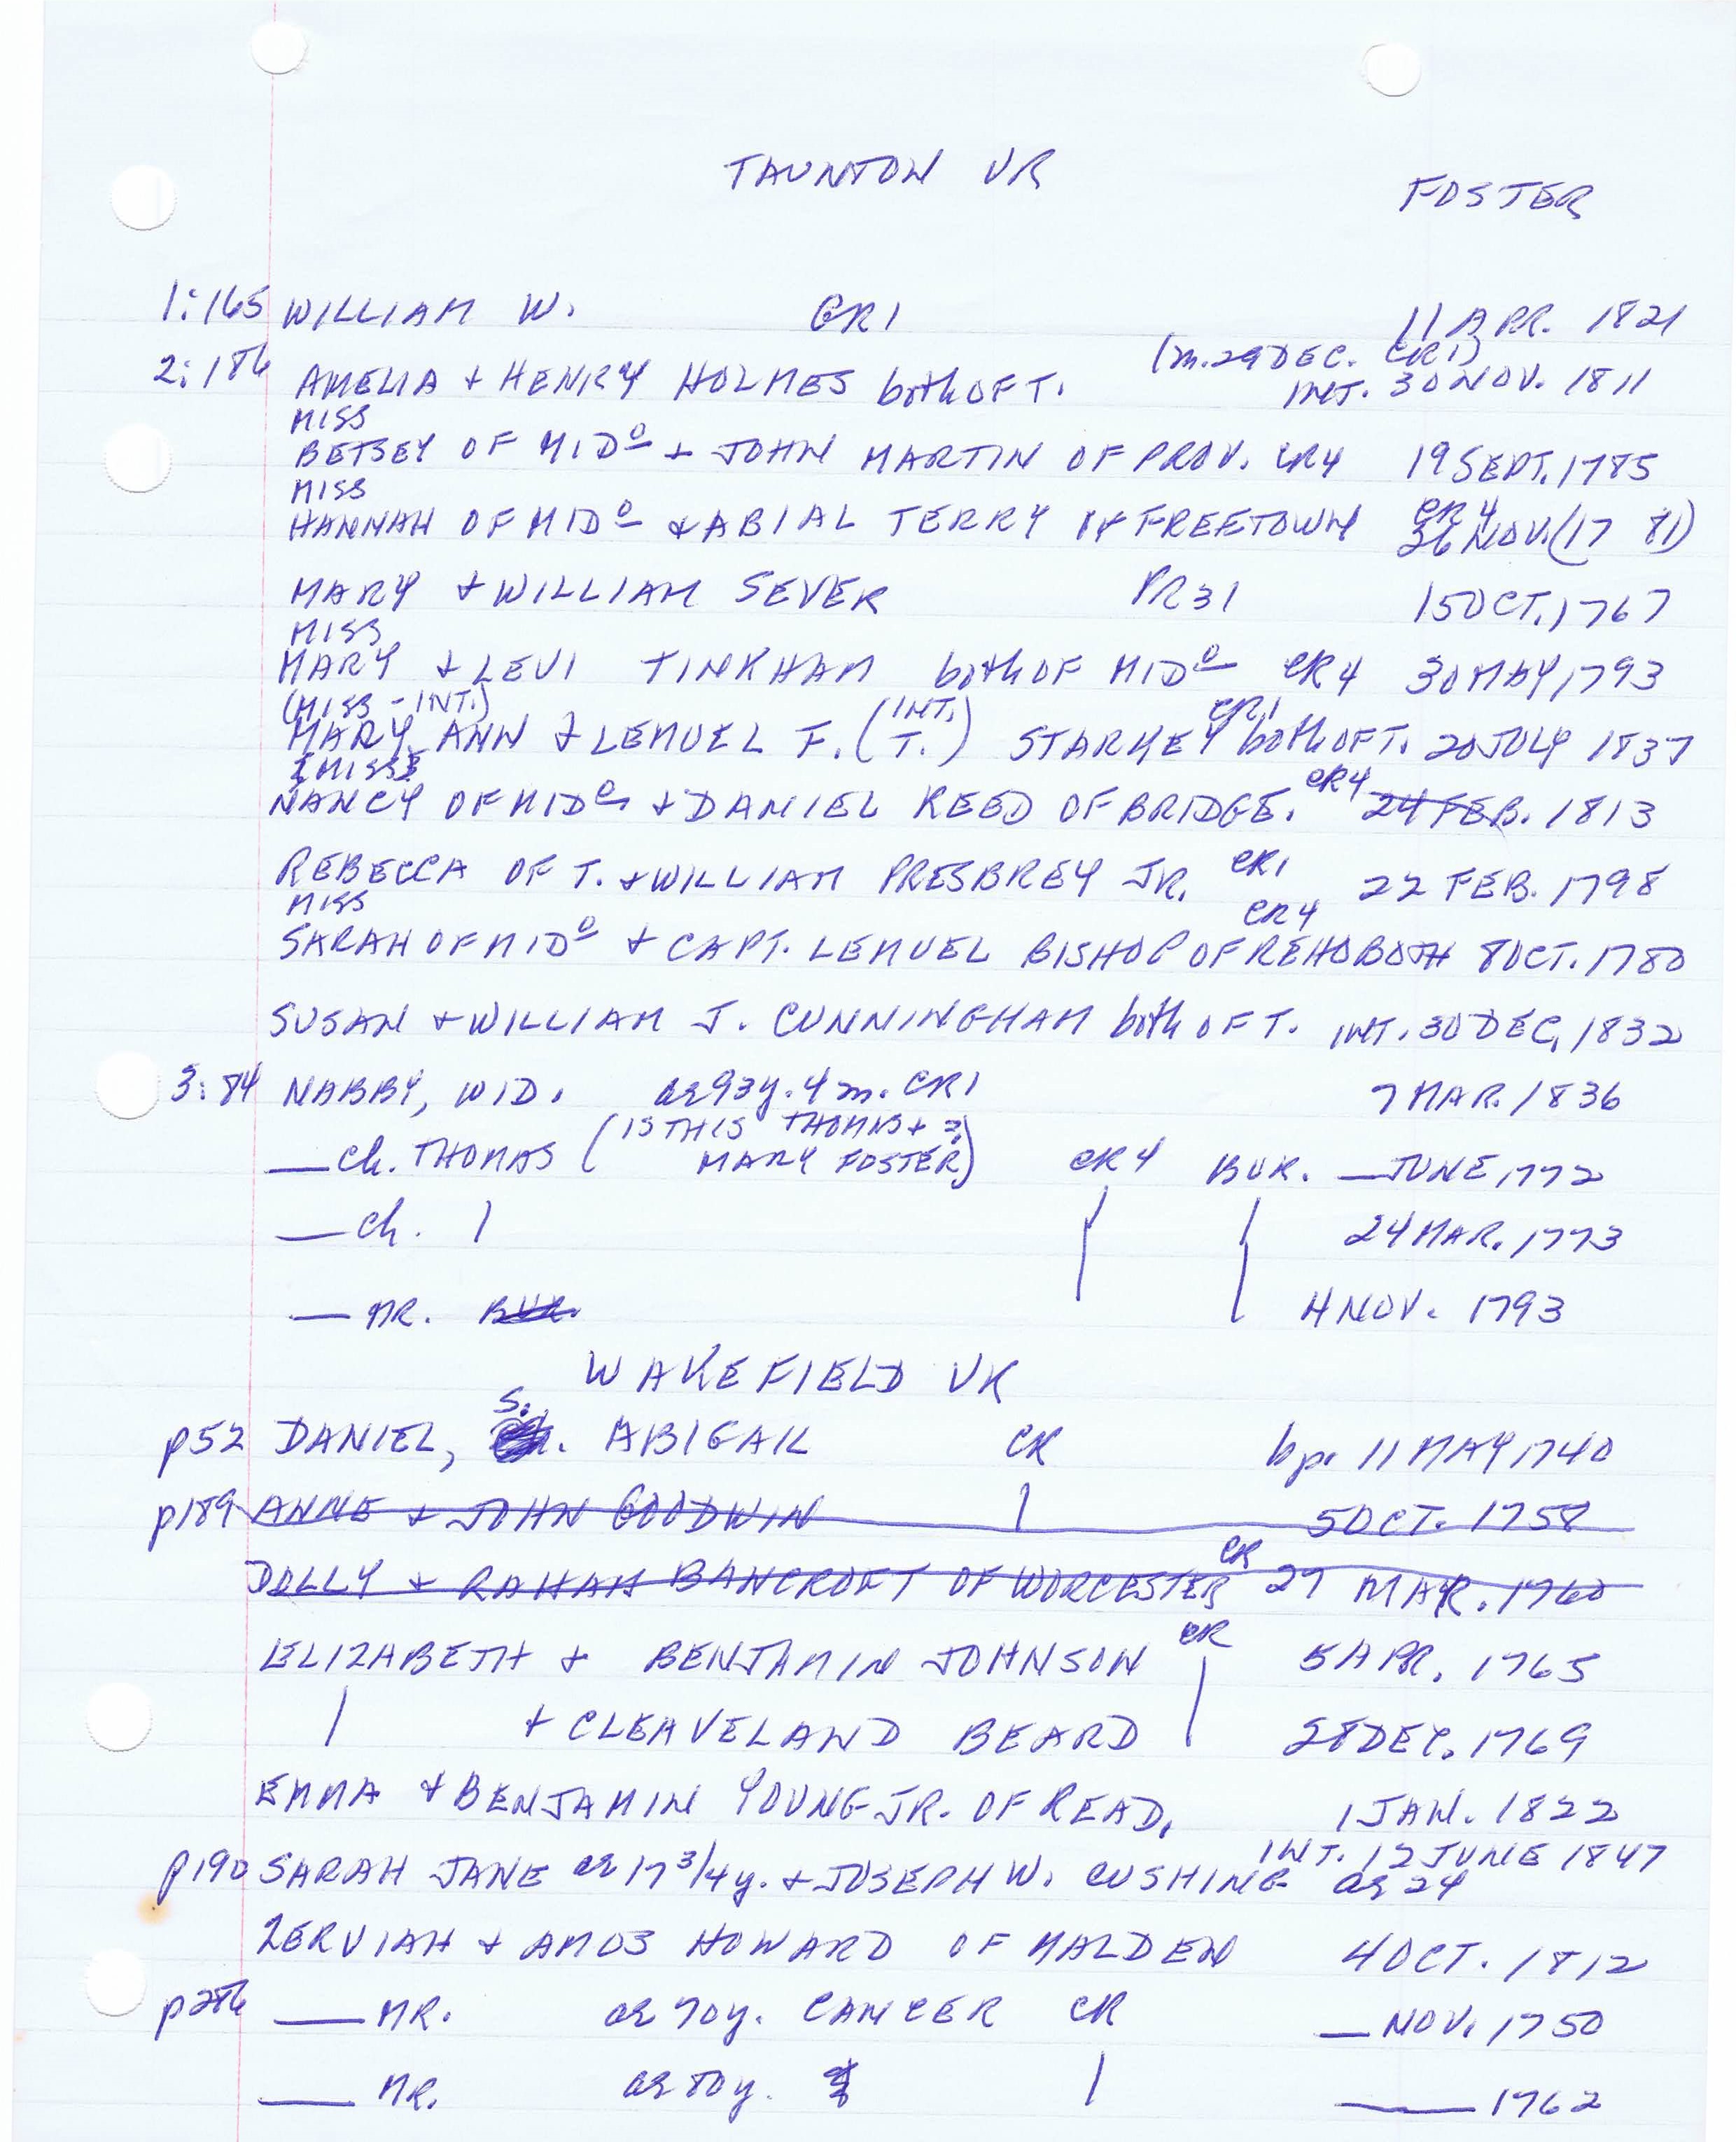 TAUNTON VR
FOSTER
1:165 WILLIAM W. GR1 11 APR. 1821
(m. 29 DEC. CR1)
2:186 AMELIA + HENRY HOLMES both OF T. INT. 30 NOV. 1811
MISS
BETSEY OF MIDº + JOHN MARTIN OF PROV. CR4 19 SEPT. 1785
MISS CR4
HANNAH OF MIDº + ABIAL TERRY OF FREETOWN 26 NOV. (17 81)
MARY + WILLIAM SEVER PR31 15 OCT. 1767
MISS
MARY + LEVI TINKHAM both OF MIDº CR4 30 MAY, 1793
(MISS - INT.) (INT.) CR1
MARY ANN + LEMUEL F. (T.) STARKEY both OF T. 20 JULY 1837
[MISS] CR4
NANCY OF MIDº + DANIEL REED OF BRIDGE. 24 FEB. 1813
REBECCA OF T. + WILLIAM PRESBREY JR. CR1 22 FEB. 1798
MISS CR4
SARAH OF MIDº + CAPT. LEMUEL BISHOP OF REHOBOTH 8 OCT. 1780
SUSAN + WILLIAM J. CUNNINGHAM both OF T. INT. 30 DEC. 1832
3:84 NABBY, WID. ae 93y. 4 m. CR1 7 MAR. 1836
(IS THIS THOMAS + ?
— ch. THOMAS MARY FOSTER) CR4 BUR. — JUNE, 1772
— ch. | | | 24 MAR. 1773
— MR. BUR. 4 NOV. 1793
WAKEFIELD VR
p52 DANIEL, S. ABIGAIL CR bp. 11 MAY 1740
p189 ANNE + JOHN GOODWIN | 5 OCT. 1758
CR
DOLLY + RAHAM BANCROFT OF WORCESTER 27 MAR. 1760
CR
ELIZABETH + BENJAMIN JOHNSON 5 APR. 1765
| + CLEAVELAND BEARD | 28 DEC. 1769
EMMA + BENJAMIN YOUNG JR. OF READ. 1 JAN. 1822
INT. 12 JUNE 1847
p190 SARAH JANE ae 17 3/4 y. + JOSEPH W. CUSHING ae 24
ZERVIAH + AMOS HOWARD OF MALDEN 4 OCT. 1812
p286 — MR. ae 70y. CANCER CR — NOV. 1750
— MR. ae 80y. | — 1762